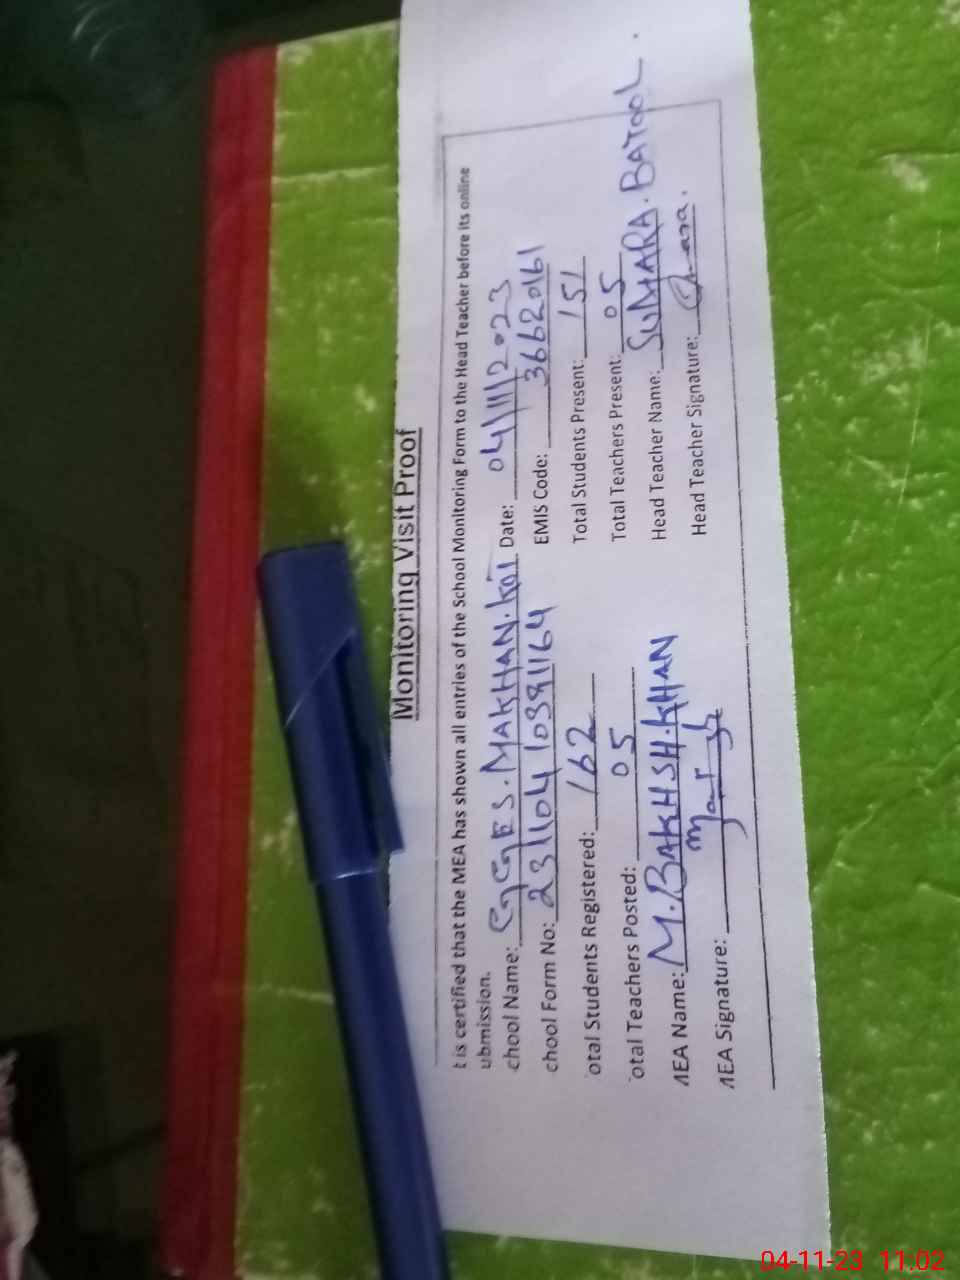 Monitoring Visit Proof
t is certified that the MEA has shown all entries of the School Monitoring Form to the Head Teacher before its online
ubmission.
chool Name: GGES. MAKHAN. Date: 04/11/2023
chool Form No: EMIS Code: 36620161
otal Students Registered: 162 Total Students Present: 151
otal Teachers Posted: 05 Total Teachers Present: 05
MEA Name: M. BAKHSH. KHAN Head Teacher Name: SUMARA. BATOOL.
MEA Signature: Head Teacher Signature:
04-11-23 11:02